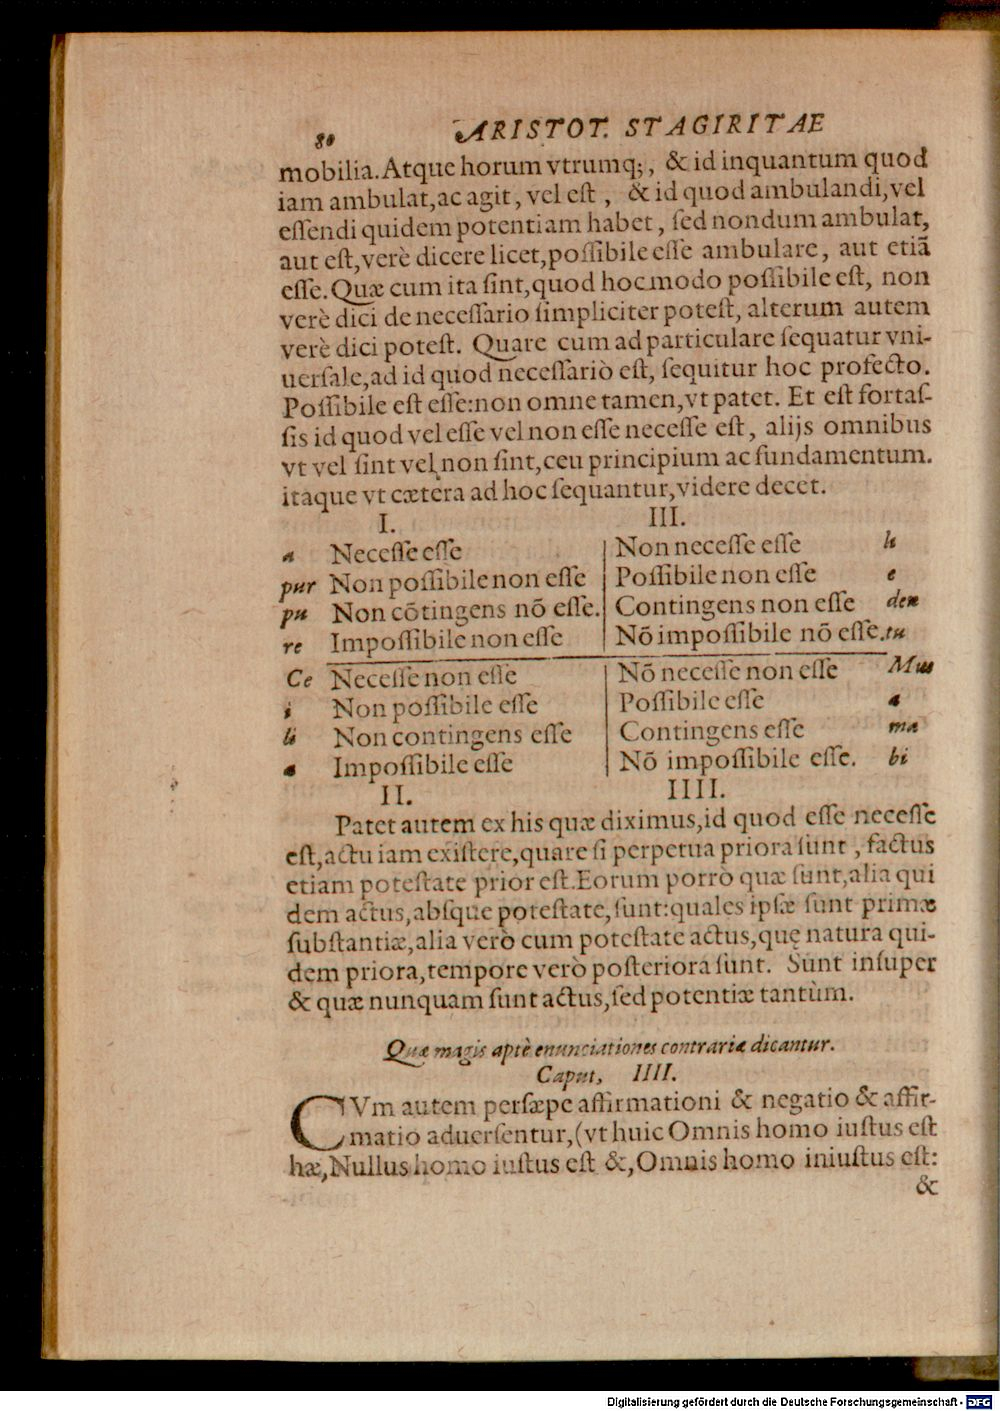 80 ARISTOT. STAGIRITAE
mobilia. Atque horum vtrumq;, & id inquantum quod
iam ambulat, ac agit, vel est, & id quod ambulandi, vel
essendi quidem potentiam habet, sed nondum ambulat,
aut est, verè dicere licet, possibile esse ambulare, aut etiã
esse. Quæ cum ita sint, quod hoc modo possibile est, non
verè dici de necessario simpliciter potest, alterum autem
verè dici potest. Quare cum ad particulare sequatur vni-
uersale, ad id quod necessariò est, sequitur hoc profecto.
Possibile est esse: non omne tamen, vt patet. Et est fortas-
sis id quod vel esse vel non esse necesse est, alijs omnibus
vt vel sint vel non sint, ceu principium ac fundamentum.
itaque vt cætera ad hoc sequantur, videre decet.
I. III.
a Necesse esse Non necesse esse li
pur Non possibile non esse Possibile non esse e
pu Non cõtingens nõ esse. Contingens non esse den
re Impossibile non esse Nõ impossibile nõ esse. tu
Ce Necesse non esse Nõ necesse non esse Mus
i Non possibile esse Possibile esse a
li Non contingens esse Contingens esse ma
a Impossibile esse Nõ impossibile esse. bi
II. IIII.
Patet autem ex his quæ diximus, id quod esse necesse
est, actu iam existere, quare si perpetua priora sunt, factus
etiam potestate prior est. Eorum porrò quæ sunt, alia qui
dem actus, absque potestate, sunt: quales ipsæ sunt primæ
substantiæ, alia verò cum potestate actus, quę natura qui-
dem priora, tempore verò posteriora sunt. Sunt insuper
& quæ nunquam sunt actus, sed potentiæ tantùm.
Quæ magis aptè enunciationes contrariæ dicantur.
Caput, IIII.
CVm autem persæpe affirmationi & negatio & affir-
matio aduersentur, (vt huic Omnis homo iustus est
hæ, Nullus homo iustus est &, Omnis homo iniustus est:
&
Digitalisierung gefördert durch die Deutsche Forschungsgemeinschaft - DFG